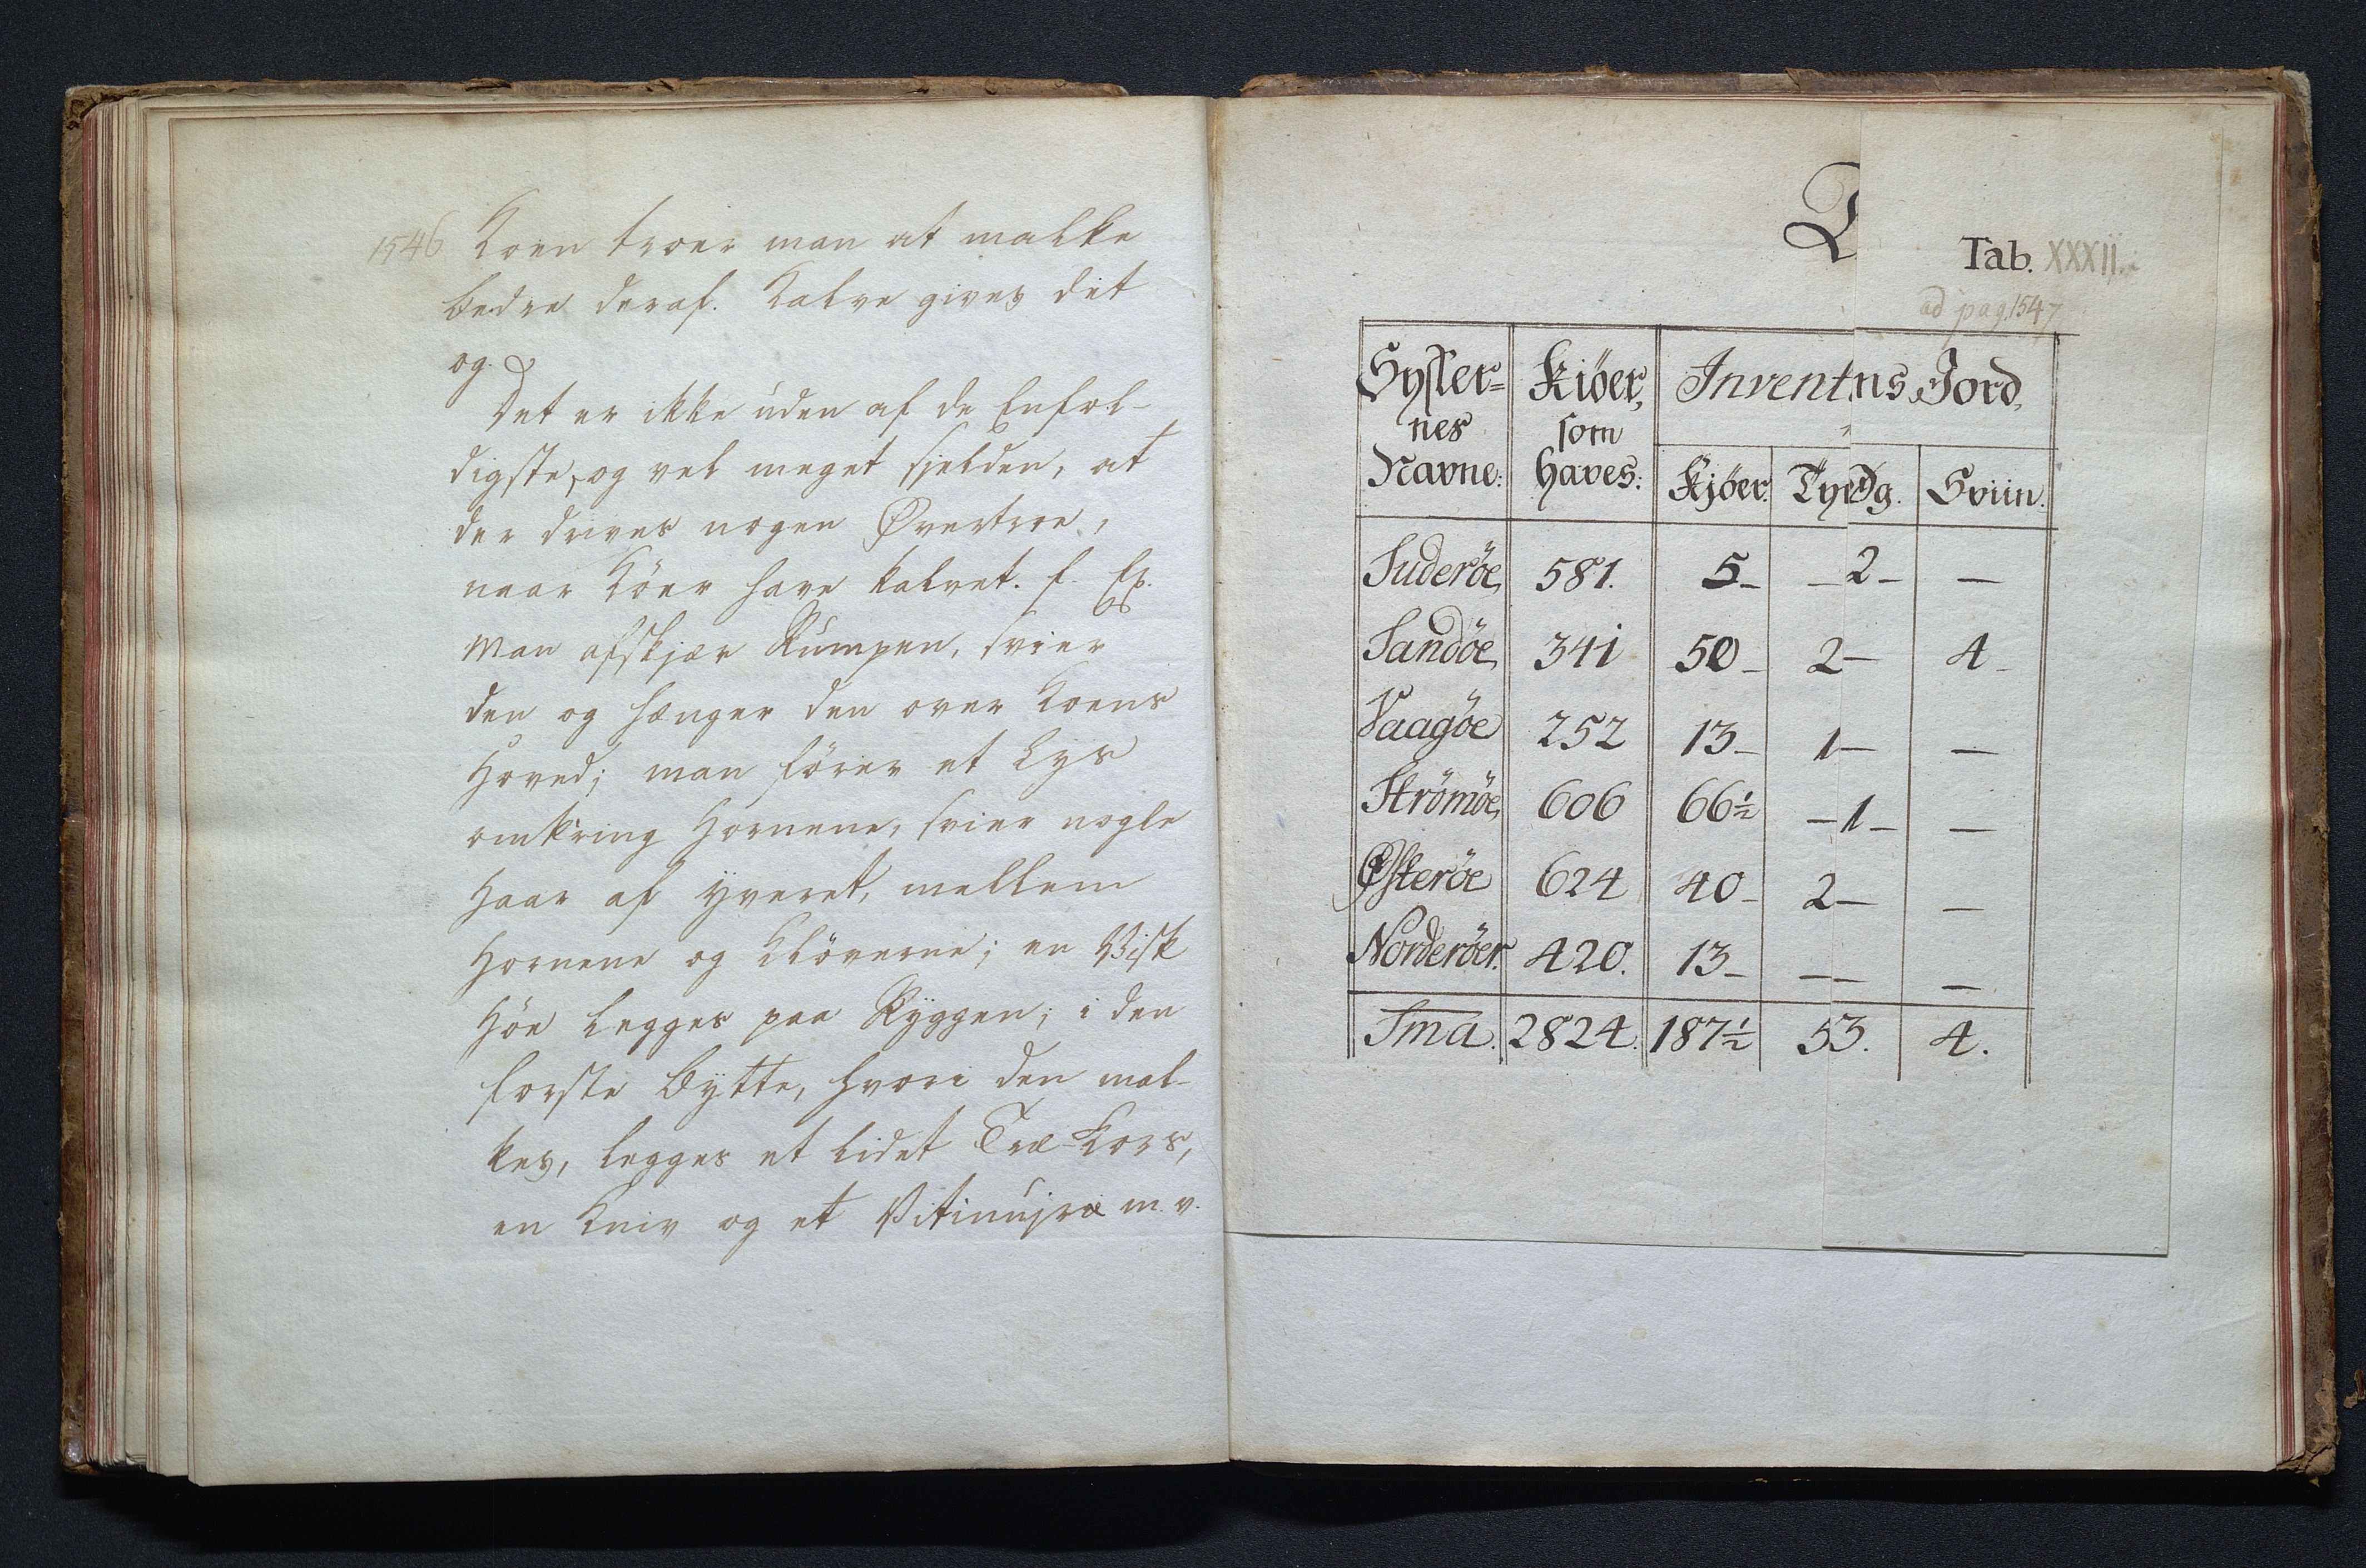 1546 Koen troer man at malke
bedre deraf. Kalve gives det
og.
Det er ikke uden af de Enfol-
digste, og vel meget sjelden, at
der drives nogen Overtroe,
naar Köer have kalvet. f. Ex.
Man afskjær Rumpen, svier
den og hænger den over Koens
Hoved; man förer et Lys
omkring Hornene, svier nogle
Haar af Yveret, mellem
Hornene og Klöverne; en Visk
Höe legges paa Ryggen; i den
forste Bytte, hvori den mal-
kes, legges et lidet Træ-Kors,
en Kniv og et m. v.
Tab. XXXII.
ad pag. 1547
Sysler= Kiöer, Inventns Jord,
nes som
Navne: haves: Kjöer. Sviin.
Suderöe, 581. 5- - 2 - -
Sandöe, 341 50- 2- 4-
Vaagöe 252 13- 1- -
Strömöe, 606 66½ - 1 - -
Österöe 624 40- 2- -
Norderöer. 420. 13- - -
Sma. 2824. 187½ 53. 4.